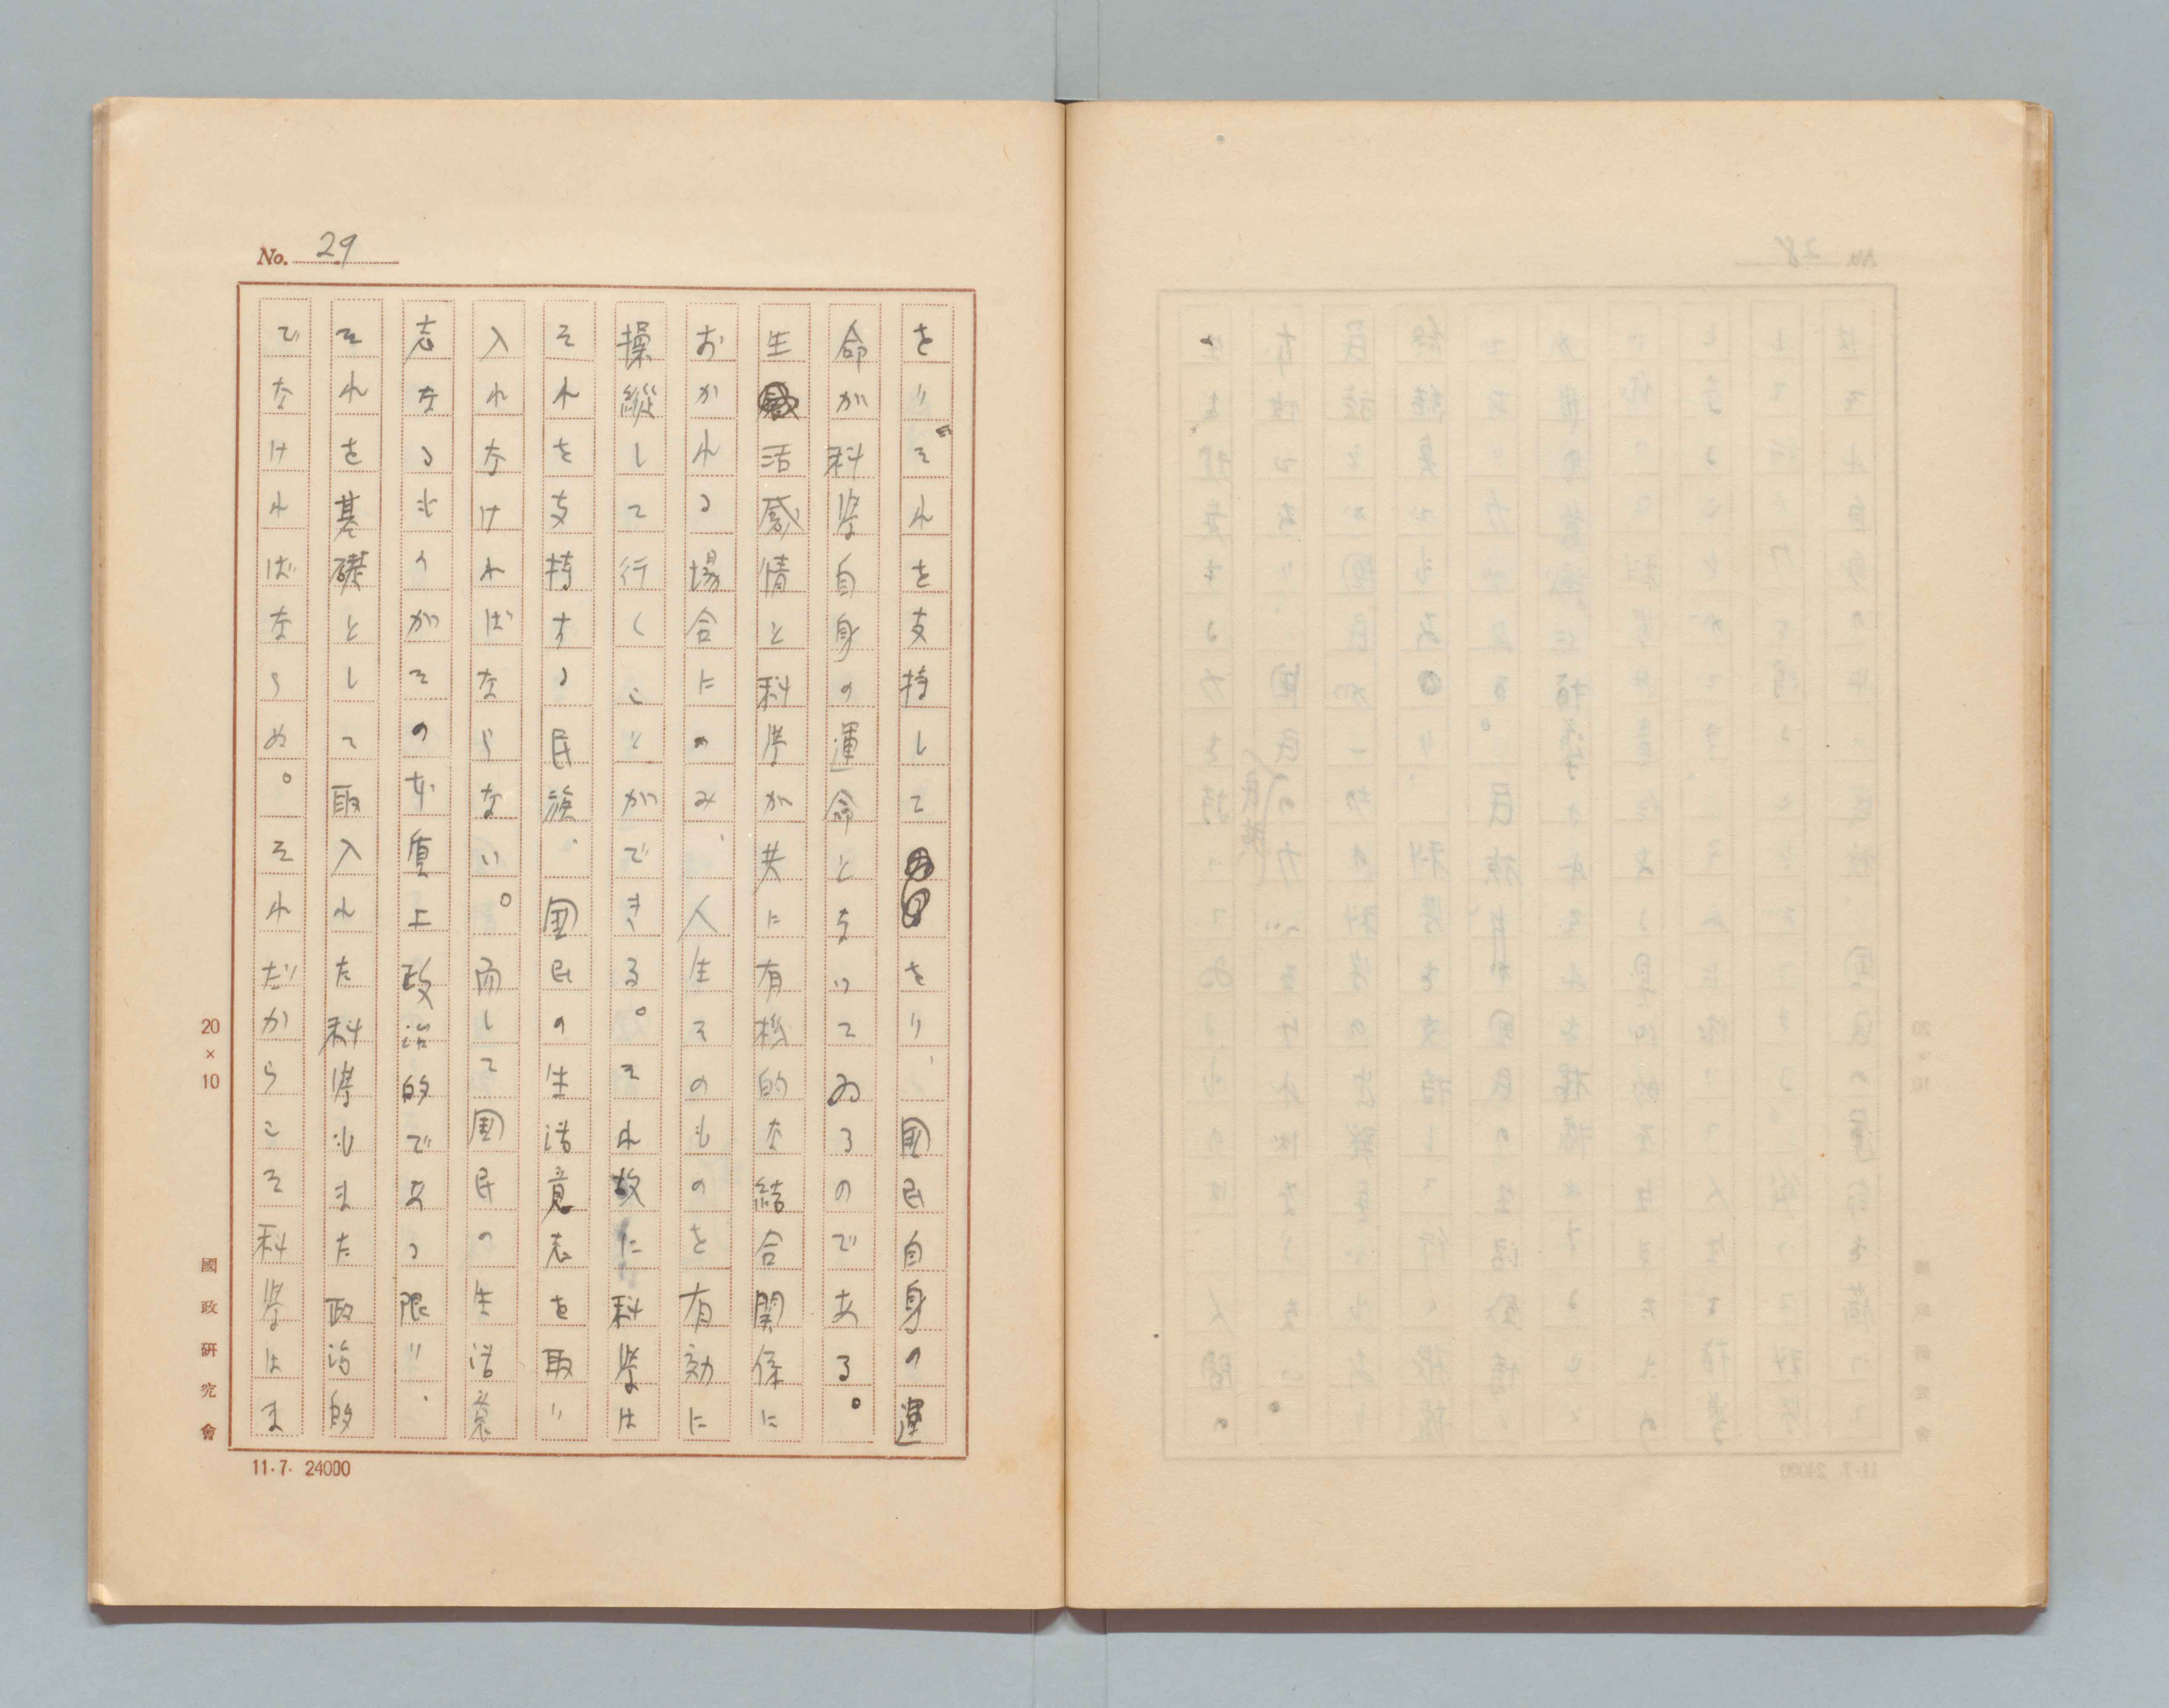 No. 29
をりそれを支持してをり、国民自身の運
命が科学自身の運命となつてゐるのである。
生活感情と科学が共に有機的な結合関係に
おかれる場合にのみ、人生そのものを有効に
操縦して行くことができる。それ故に科学は
それを支持する民族、国民の生活意志を取り
入れなければならない。而して国民の生活意
志なるものがその本質上政治的である限り、
それを基礎として取入れた科学もまた政治的
でなければならぬ。それだからこそ科学はま
20×10
國政研究會
11.7. 24000